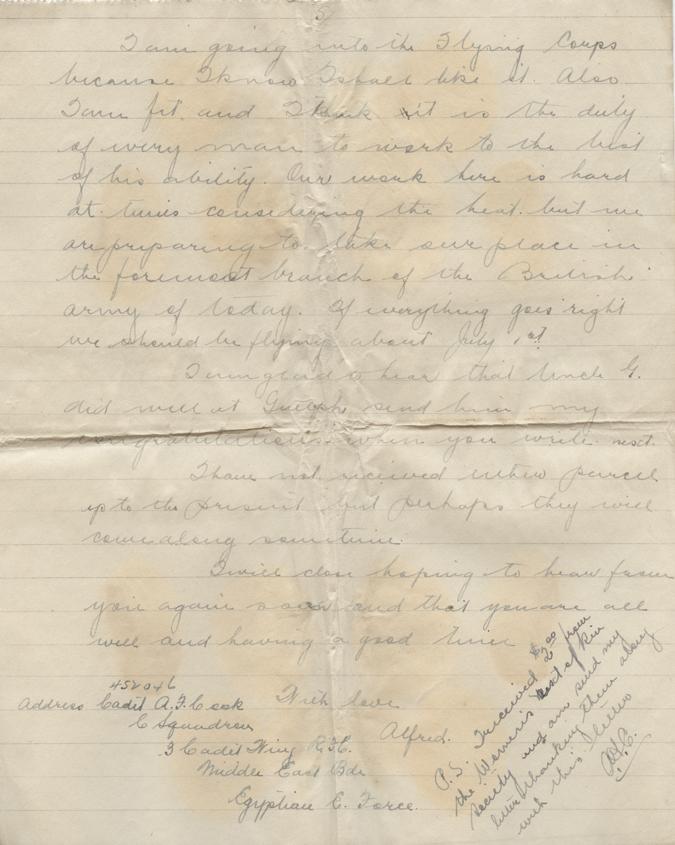 3
I am going into the Flying Corps
because I know I shall like it. Also
I am fit, and I think it is the duty
of every man to work to the best
of his ability. Our work here is hard
at times considering the heat. but we
are preparing to take our place in
the foremost branch of the British
army of today. If everything goes right
we should be flying about July 1st.
I am glad to hear that Uncle G.
did well at Guelph send him my
congratulations when you write next.
I have not received either parcel
up to the present but perhaps they will
come along sometime.
I will close hoping to hear from
you again soon and that you are all
well and having a good time
With love
Alfred.
452046
Address Cadet A.F. Cook
C Squadron
3 Cadet Wing R.F.C.
Middle East Bde
Egyptian E. Force.
P.S. I received $2.00 from
the Women's next of kin
society and am send my
letter thanking them along
with this letter